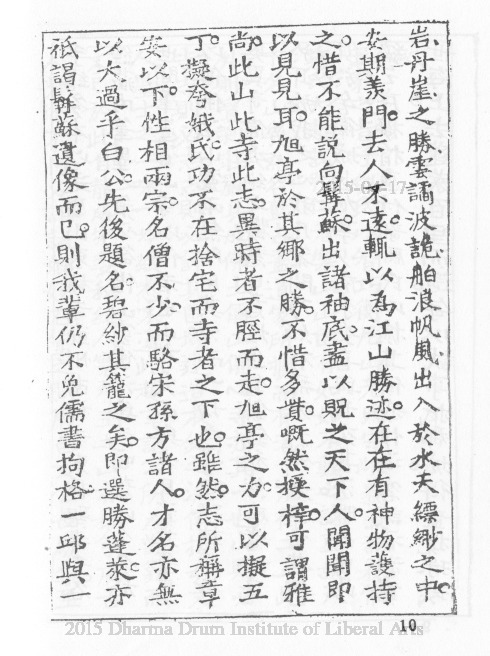 岩丹崖之勝雲譎波詭舶浪帆風出入於水天縹緲之中
安期羨門去人不遠輒以為江山勝迹在在有神物護持
之惜不能説向髯蘇出諸袖底盡以貺之天下人聞聞即
以見見耳旭亭於其鄉之勝不惜多貲嘅然授梓可謂雅
尚此山此寺此志異時者不脛而走旭亭之力可以擬五
丁擬夸娥氏功不在捨宅而寺者之下也雖然志所稱章
安以下性相兩宗名僧不少而駱宋孫方諸人才名亦無
以大過乎白公先後題名碧紗其籠之矣即選勝蓬萊亦
祇謁髯蘇遺像而已則我輩仍不免儒書拘格一邱與一
10
2015 Dharma Drum Institute of Liberal Arts